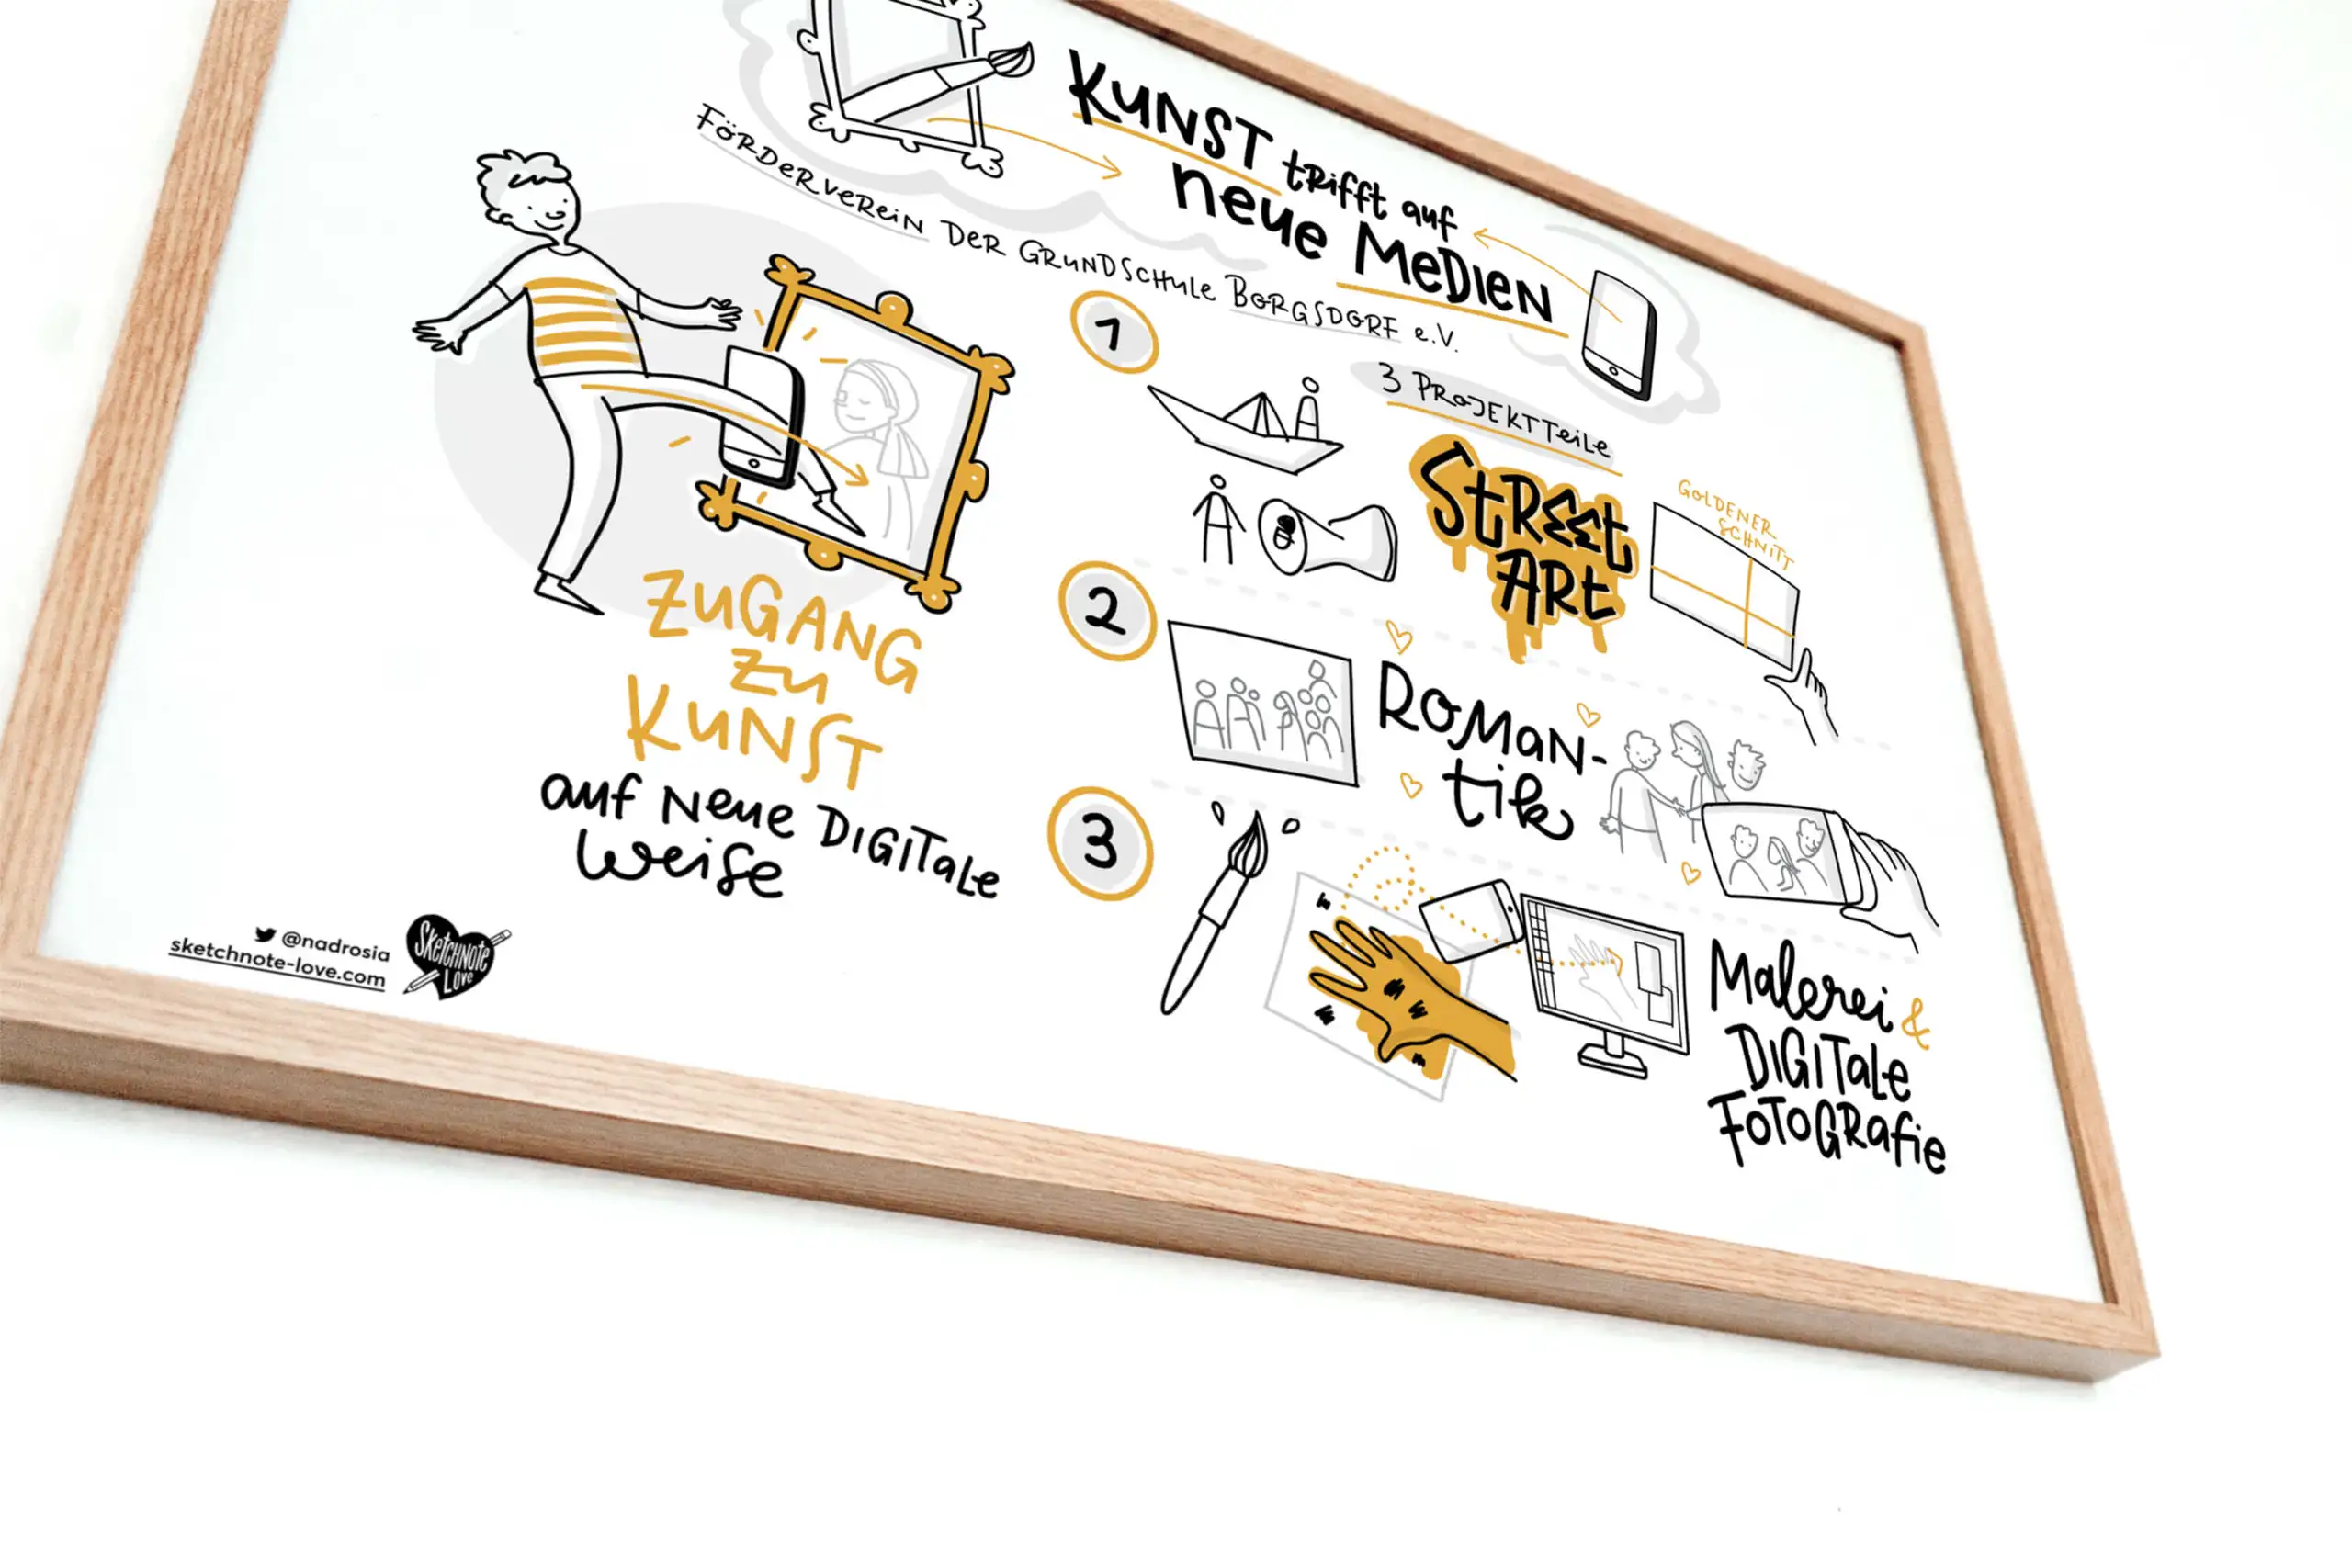 KUNST trifft auf
neue Medien
Förderverein der Grundschule Borgsdorf e.V.
3 Projektteile
1
Street
Art
Goldener
Schnitt
2
Roman-
tik
3
Malerei &
Digitale
Fotografie
Zugang
zu
Kunst
auf neue digitale
Weise
@nadrosia
sketchnote-love.com
Sketchnote
Love